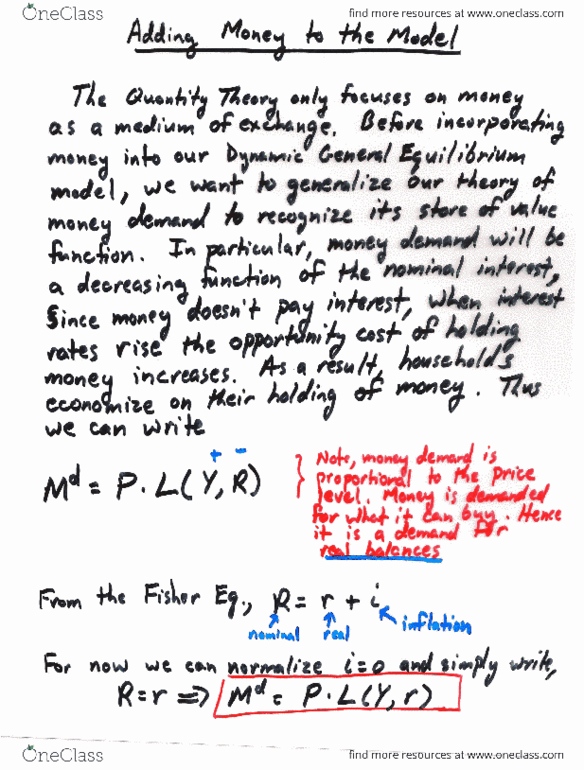 OneClass
find more resources at www.oneclass.com
Adding Money to the Model
The Quantity Theory only focuses on money
as a medium of exchange. Before incorporating
money into our Dynamic General Equilibrium
model, we want to generalize our theory of
money demand to recognize its store of value
function. In particular, money demand will be
a decreasing function of the nominal interest,
Since money doesn't pay interest, when interest
rates rise the opportunity cost of holding
money increases. As a result, households
economize on their holding of money. Thus
we can write
+ -
Mᵈ = P·L(Y, R)
Note, money demand is
proportional to the price
level. Money is demanded
for what it can buy. Hence
it is a demand for
real balances
From the Fisher Eq., R = r + i
nominal real inflation
For now we can normalize i=0 and simply write,
R=r ⇒ Mᵈ = P·L(Y, r)
OneClass
find more resources at www.oneclass.com